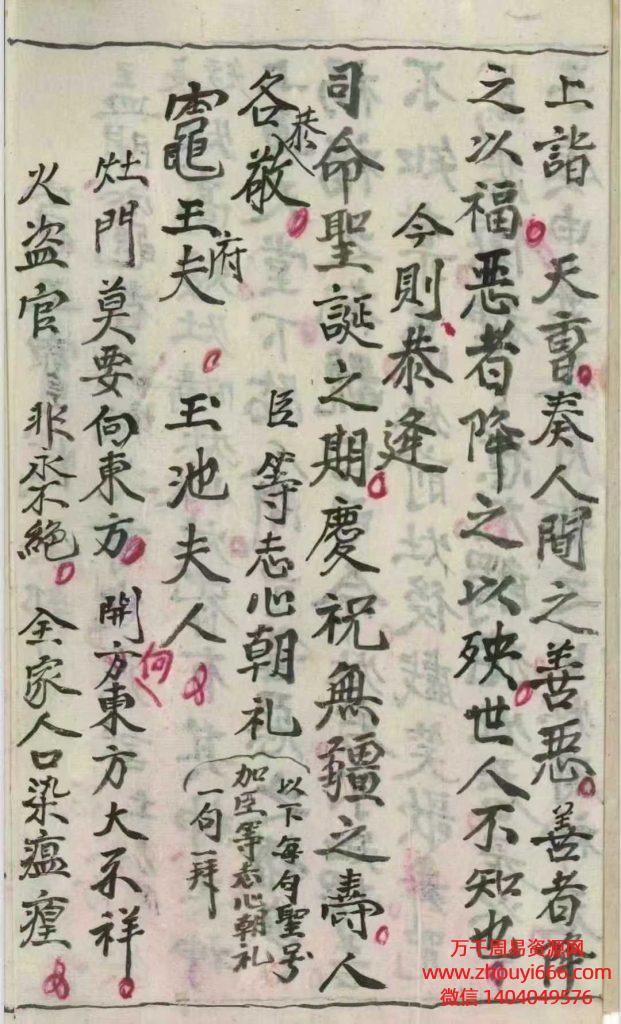 上詣 天曹奏人間之善惡善者降
之以福惡者降之以殃世人不知也
今則恭逢
司命聖誕之期慶祝無疆之壽人
各恭敬 臣等志心朝礼
(以下每句聖号
加臣等志心朝礼
一句一拜)
竈王府夫 玉池夫人
灶門莫要向東方 開方向東方大不祥
火盜官非永不絕 全家人口染瘟瘟
万千周易资源网
www.zhouyi666.com
微信 1404049576